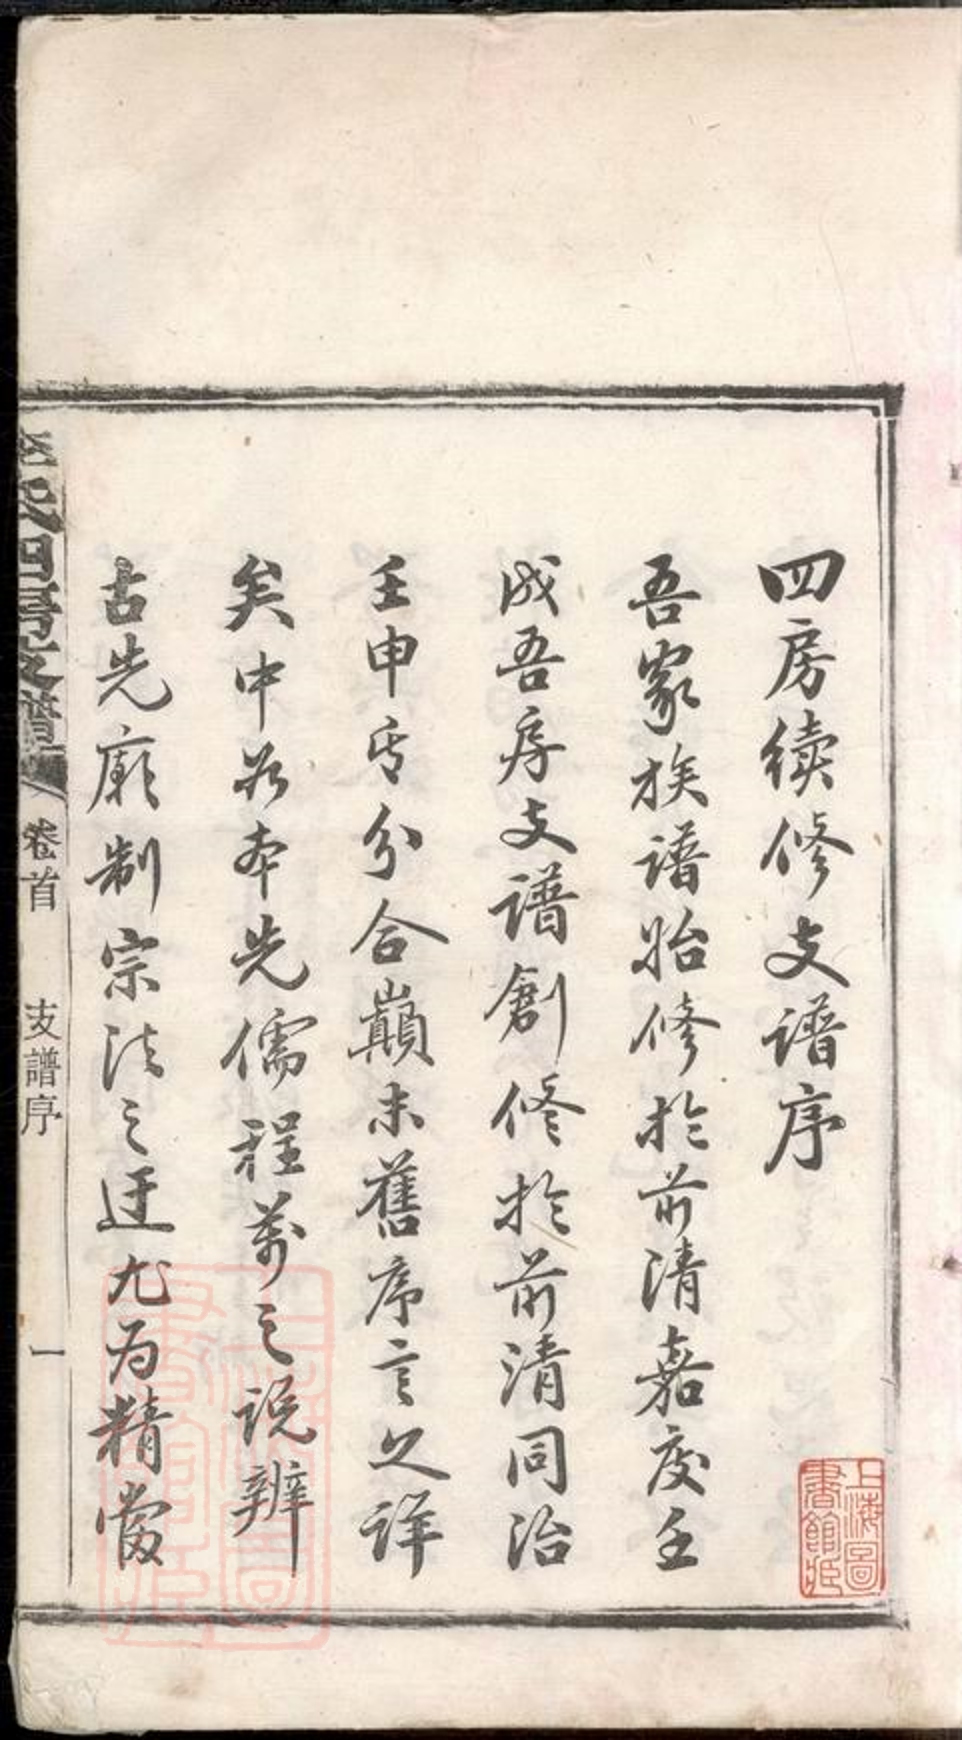 四房續修支譜序
吾家族譜始修於前清嘉慶壬
戌吾房支譜創修於前清同治
壬申其分合巔末舊序言之詳
矣中若本先儒程萬之說辨
古先廟制宗法之迂尤為精當
氏四房支譜 卷首 支譜序 一
上海圖書館藏